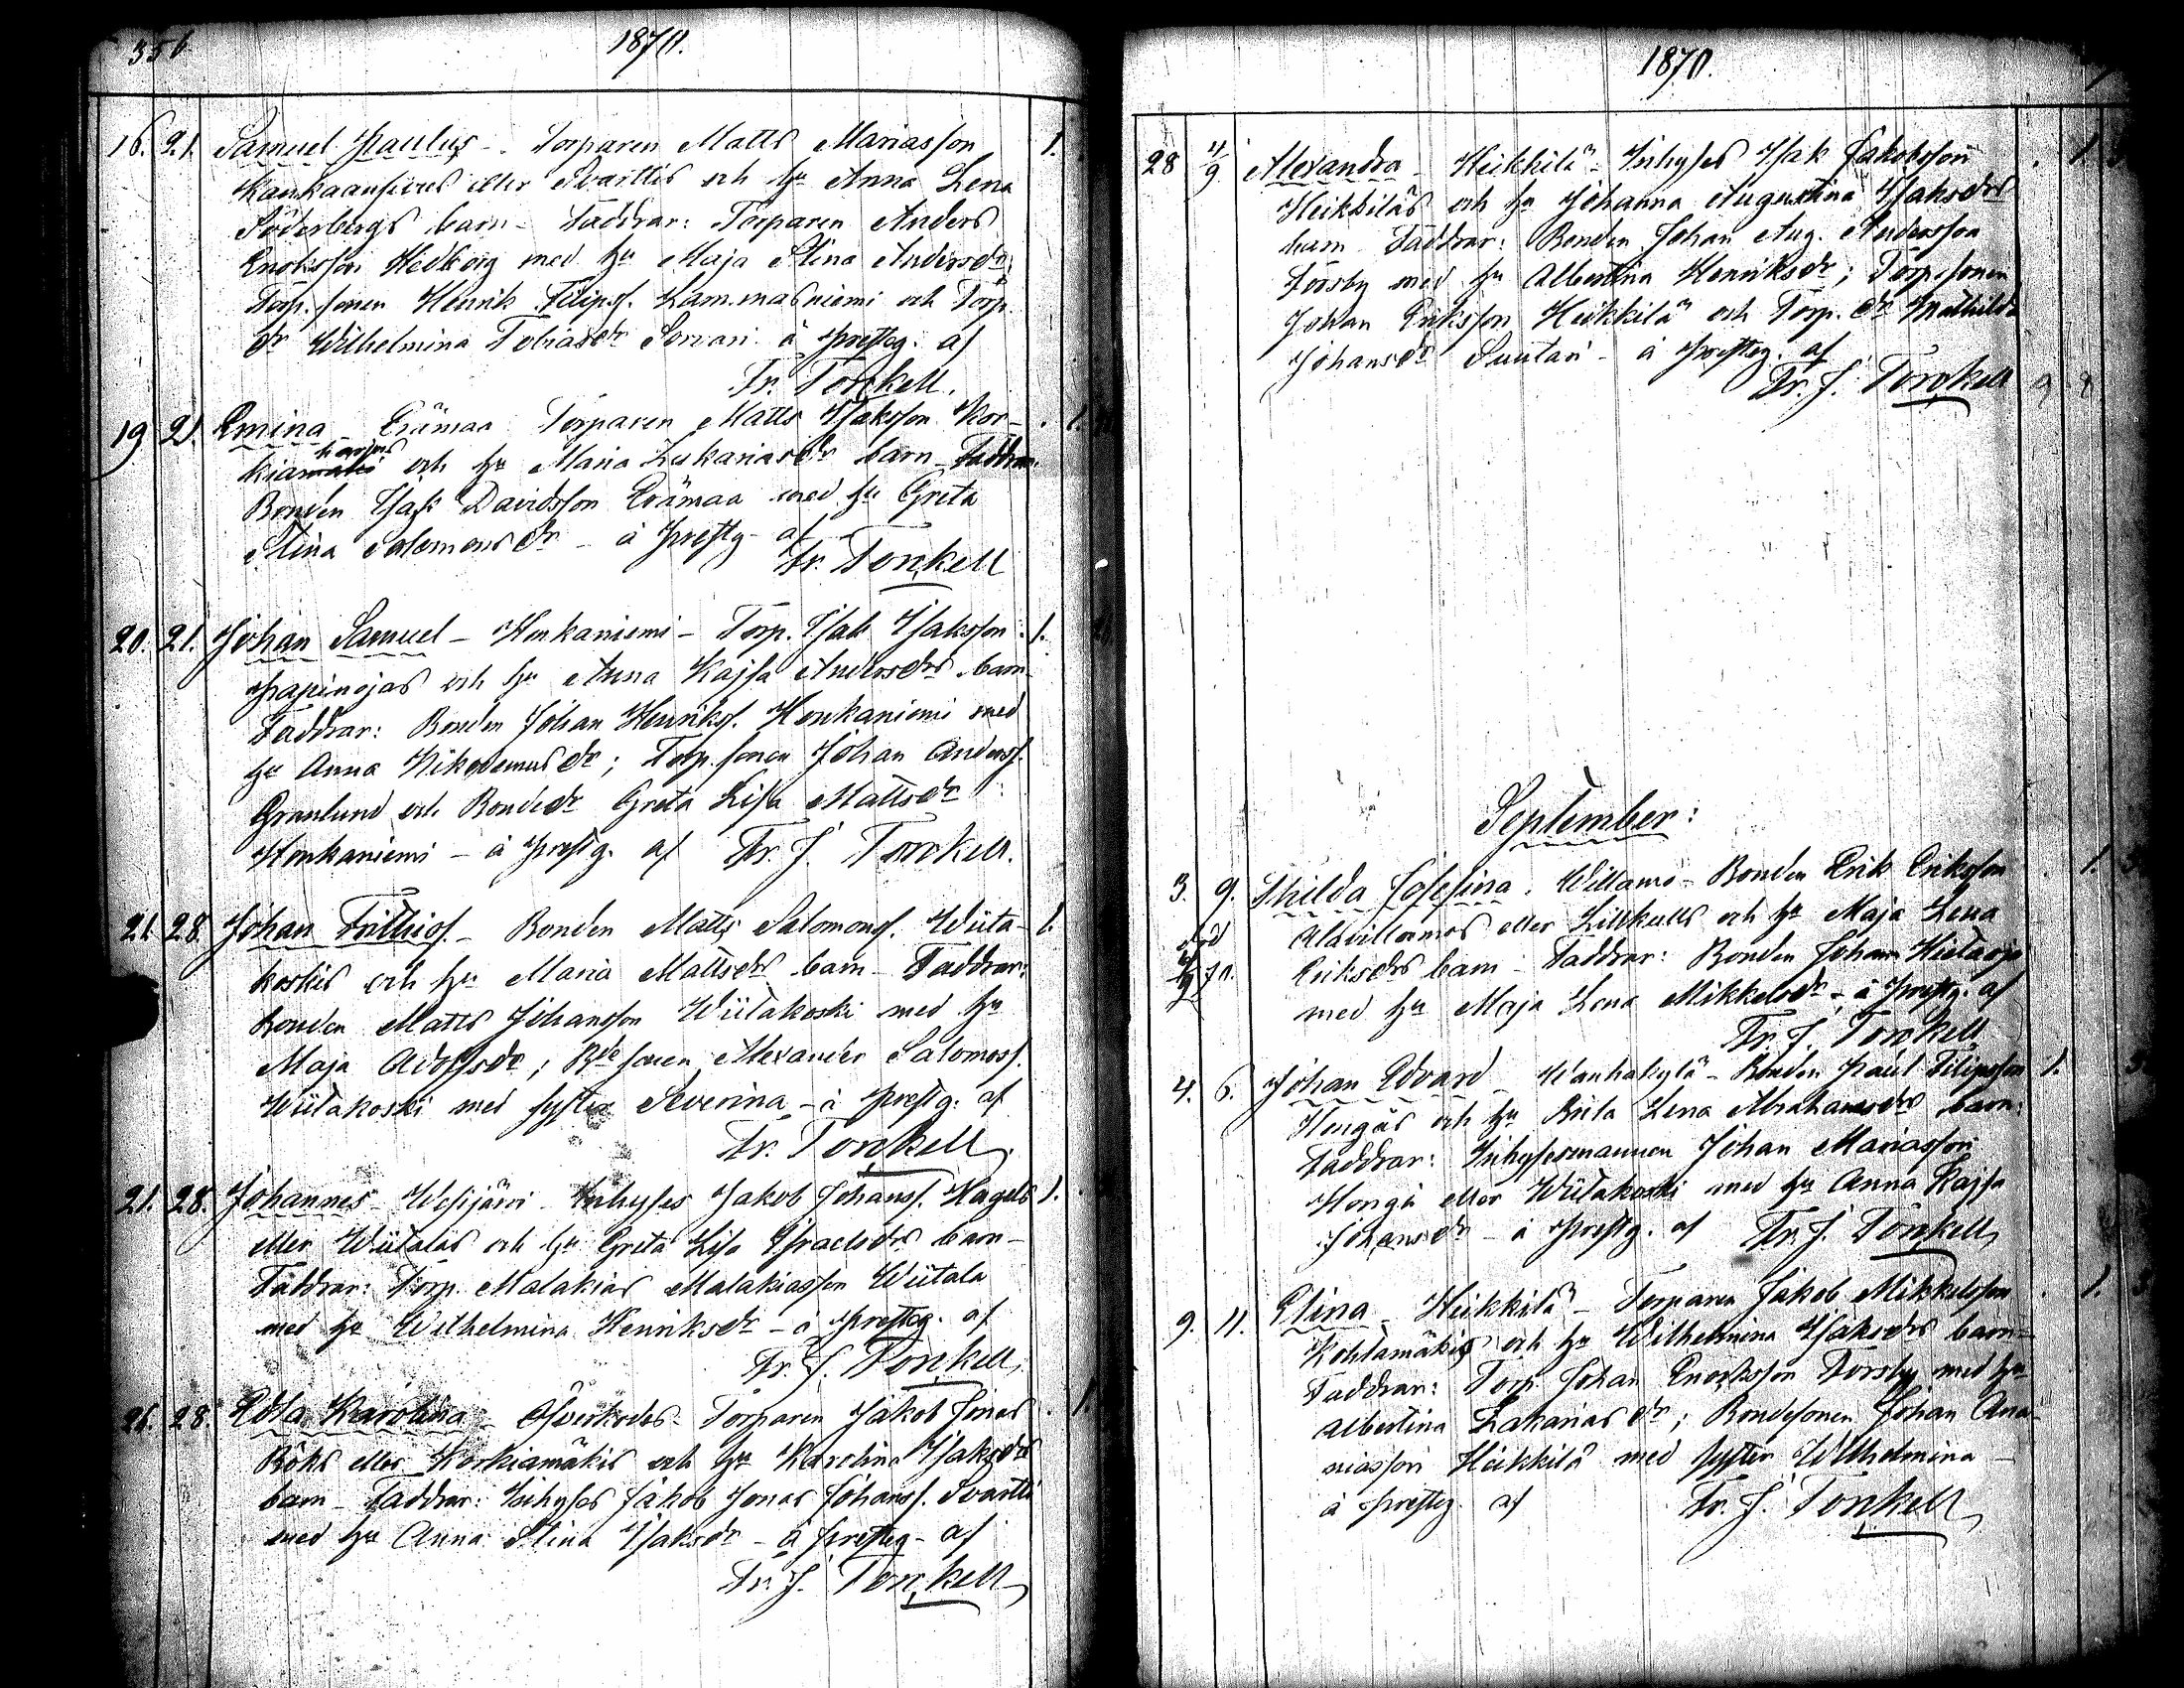 356
1870.
16. 21. Samuel Paulus - Torparen Matts Mariasson 1.
eller Svarttis och hu Anna Lena
Söderbergs barn - Faddrar: Torparen Anders
Enoksson med hu Maja Stina Andersdr;
Torp. sonen Henrik Filipss. och Torp.
dr Wilhelmina Tobiasdr - å prestg. af
Fr. Torckell.
19 21. Emina - Erämaa Torparen Matts Isaksson Kor- 1.
kia och hu Maria Zakariasdr barn - Faddrar:
Bonden Isak Davidsson Erämaa med hu Greta
Stina Salomonsdr - å prestg. af
Fr. Torckell
20. 21. Johan Samuel - Honkaniemi - Torp. Isak Isaksson 1.
och hu Anna Kajsa Andersdrs barn -
Faddrar: Bonden Johan Henrikss. Honkaniemi med
hu Anna Nikodemusdr; Torp. sonen Johan Anderss.
Granlund och Bondedr Greta Lisa Mattsdr
Honkaniemi - å prestg. af Fr. J. Torckell.
21. 28. Johan Frithiof. - Bonden Matts Salomonss. Wiita- 1.
koskis och hu Maria Mattsdrs barn - Faddrar:
Bonden Matts Johansson Wiitakoski med hu
Maja Adolfsdr; Bde sonen Alexander Salomonss.
Wiitakoski med syster Severina - å prestg. af
Fr. Torckell
21. 28. Johannes - Wesijärvi - Inhyses Jakob Johanss. 1.
eller Wiitalas och hu Greta Lisa Israelsdrs barn -
Faddrar: Torp. Malakias Malakiasson Wiitala
med hu Wilhelmina Henriksdr - å prestg. af
Fr. J. Torckell
26. 28. Edla Karolina - - Torparen Jakob Jonas 1
eller Korkiamäkis och hu Karolina Isaksdrs
barn - Faddrar: Inhyses Jakob Jonas Johanss. Svartti
med hu Anna Stina Isaksdr - å prestg - af
Fr. J. Torckell
1870.
28 4/9 Alexandra - Heikkilä - Inhyses Isak Jakobsson 1.
Heikkiläs och hu Johanna Augustina Isaksdrs
barn Faddrar: Bonden Johan Aug. Andersson
Forsby med hu Albertina Henriksdr; Torp. sonen
Johan Eriksson Heikkilä och Torp. dr Mathilda
Johansdr Suutari - å prestg. af
Fr. J. Torckell
September:
3. 9. Hilda Josefina. - Bonden Erik Eriksson 1.
eller och hu Maja Lena
Eriksdrs barn - Faddrar: Bonden Johan Hietaoja
med hu Maja Lena Mikkelsdr - å prestg. af
Fr. J. Torckell
död
4. 6. Johan Edvard - Wanhakylä - Bonden Paul Filipsson 1.
och hu Brita Lena Abrahamsdrs barn:
Faddrar: Inhysesmannen Johan Mariasson
eller Wiitakoski med hu Anna Kajsa
Johansdr - å prestg. af Fr. J. Torckell
9. 11. Elina - Heikkilä - Torparen Jakob Mikkelsson 1.
och hu Wilhelmina Isaksdrs barn -
Faddrar: Torp. Johan Enoksson Forsby med hu
Albertina Zakariasdr; Bondesonen Johan Ana-
niasson Heikkilä med syster Wilhelmina -
å prestg. af Fr. J. Torckell